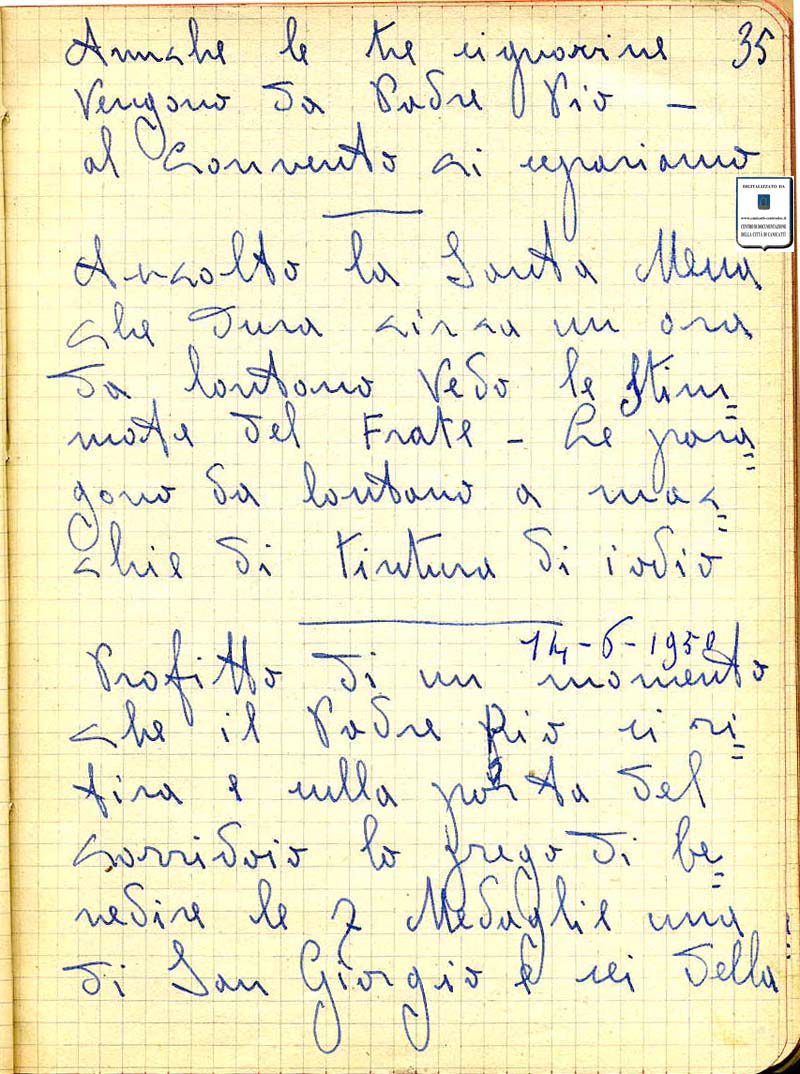 35
Annche le tre signorine
vengono da Padre Pio –
al convento ci separiamo
Ascolto la Santa Messa
che dura circa un ora
da lontano vedo le stim=
mate del Frate – Le para=
gono da lontano a mac=
chie di tintura di iodio
14-6-195
Profitto di un momento
che il Padre Pio si ri=
tira e sulla porta del
corridoio lo prego di be=
nedire le 7 Medaglie una
di San Giorgio e sei della
DIGITALIZZATO DA
CENTRO DI DOCUMENTAZIONE
DELLA CITTÀ DI CANICATTÌ